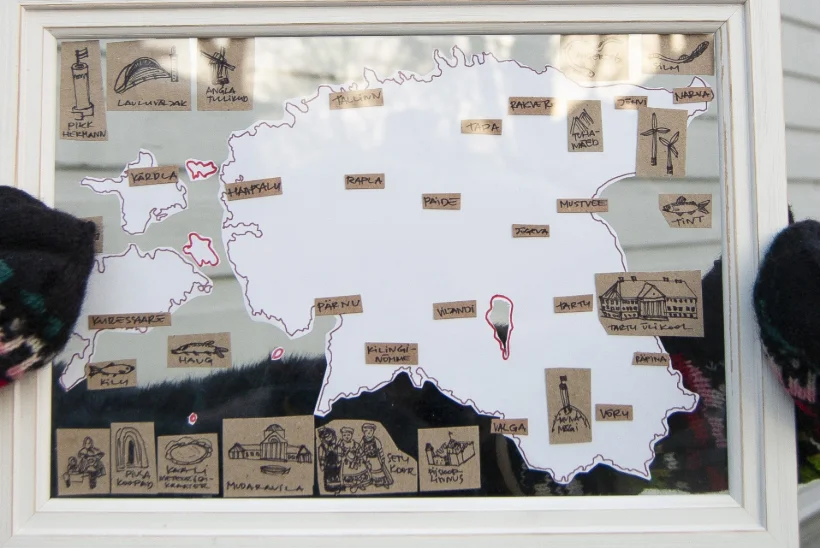 PIKK
HERMANN
LAULUVÄLJAK
ANGLA
TUULIKUD
TALLINN
RAKVERE
NARVA
TAPA
TUHA-
MÄED
KÄRDLA
HAAPSALU
RAPLA
PAIDE
MUSTVEE
TINT
JÕGEVA
KURESSAARE
PÄRNU
VILJANDI
TARTU
TARTU ÜLIKOOL
HAUG
KILU
KILINGI-
NÕMME
RÄPINA
VALGA
MUNA
MÄGI
VÕRU
PIUSA
KOOPAD
KAALI
METEORIIDI-
KRAATER
MUDARAVILA
SETU
KOOR